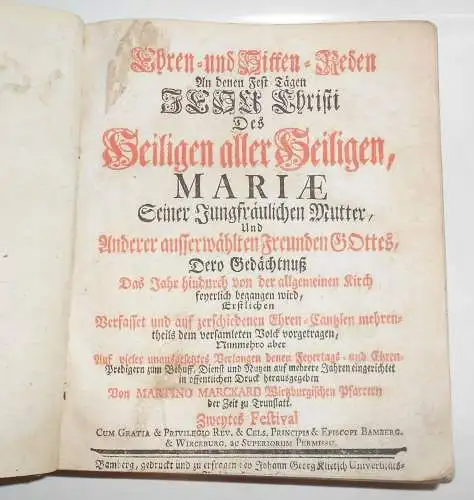 Ehren- und Sitten-Reden
An denen Fest-Tägen
JESU Christi
Des
Heiligen aller Heiligen,
MARIÆ
Seiner Jungfräulichen Mutter,
Und
Anderer ausserwählten Freunden GOttes,
Dero Gedächtnuß
Das Jahr hindurch von der allgemeinen Kirch
feyerlich begangen wird,
Erstlichen
Verfasset und auf zerschiedenen Ehren-Cantzlen mehren-
theils dem versamleten Volck vorgetragen,
Nunmehro aber
Auf vieler unausgesetztes Verlangen denen Feyertags- und Ehren-
Predigern zum Behuff, Dienst und Nutzen auf mehrere Jahren eingerichtet
in öffentlichen Druck herausgegeben
Von MARTINO MARCKARD Wirtzburgischen Pfarrern
der Zeit zu Trunstatt.
Zweytes Festival
CUM GRATIA & PRIVILEGIO REV. & CELS. PRINCIPIS & EPISCOPI BAMBERG.
& WIRCEBURG. AC SUPERIORUM PERMISSU.
Bamberg, gedruckt und zu erfragen bey Johann Georg Klietsch Universitäts-